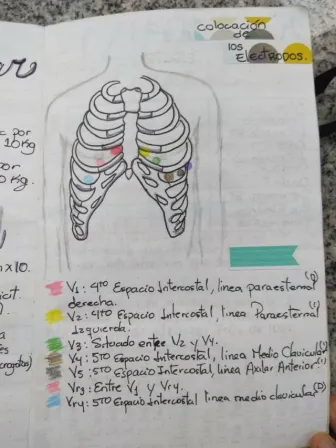 colocación
de
los
Electrodos.
ar
por
10kg
por
kg.
x10.
cit.
V1: 4to Espacio Intercostal, linea paraesternal (D)
derecha.
V2: 4to Espacio Intercostal, linea Paraesternal (I)
Izquierda.
V3: Situado entre V2 y V4.
V4: 5to Espacio Intercostal, linea Medio Clavicular (I)
V5: 5to Espacio Intercostal, linea Axilar Anterior. (I)
Vr3: Entre V1 y Vr4.
Vr4: 5to Espacio Intercostal linea medio clavicular (D)